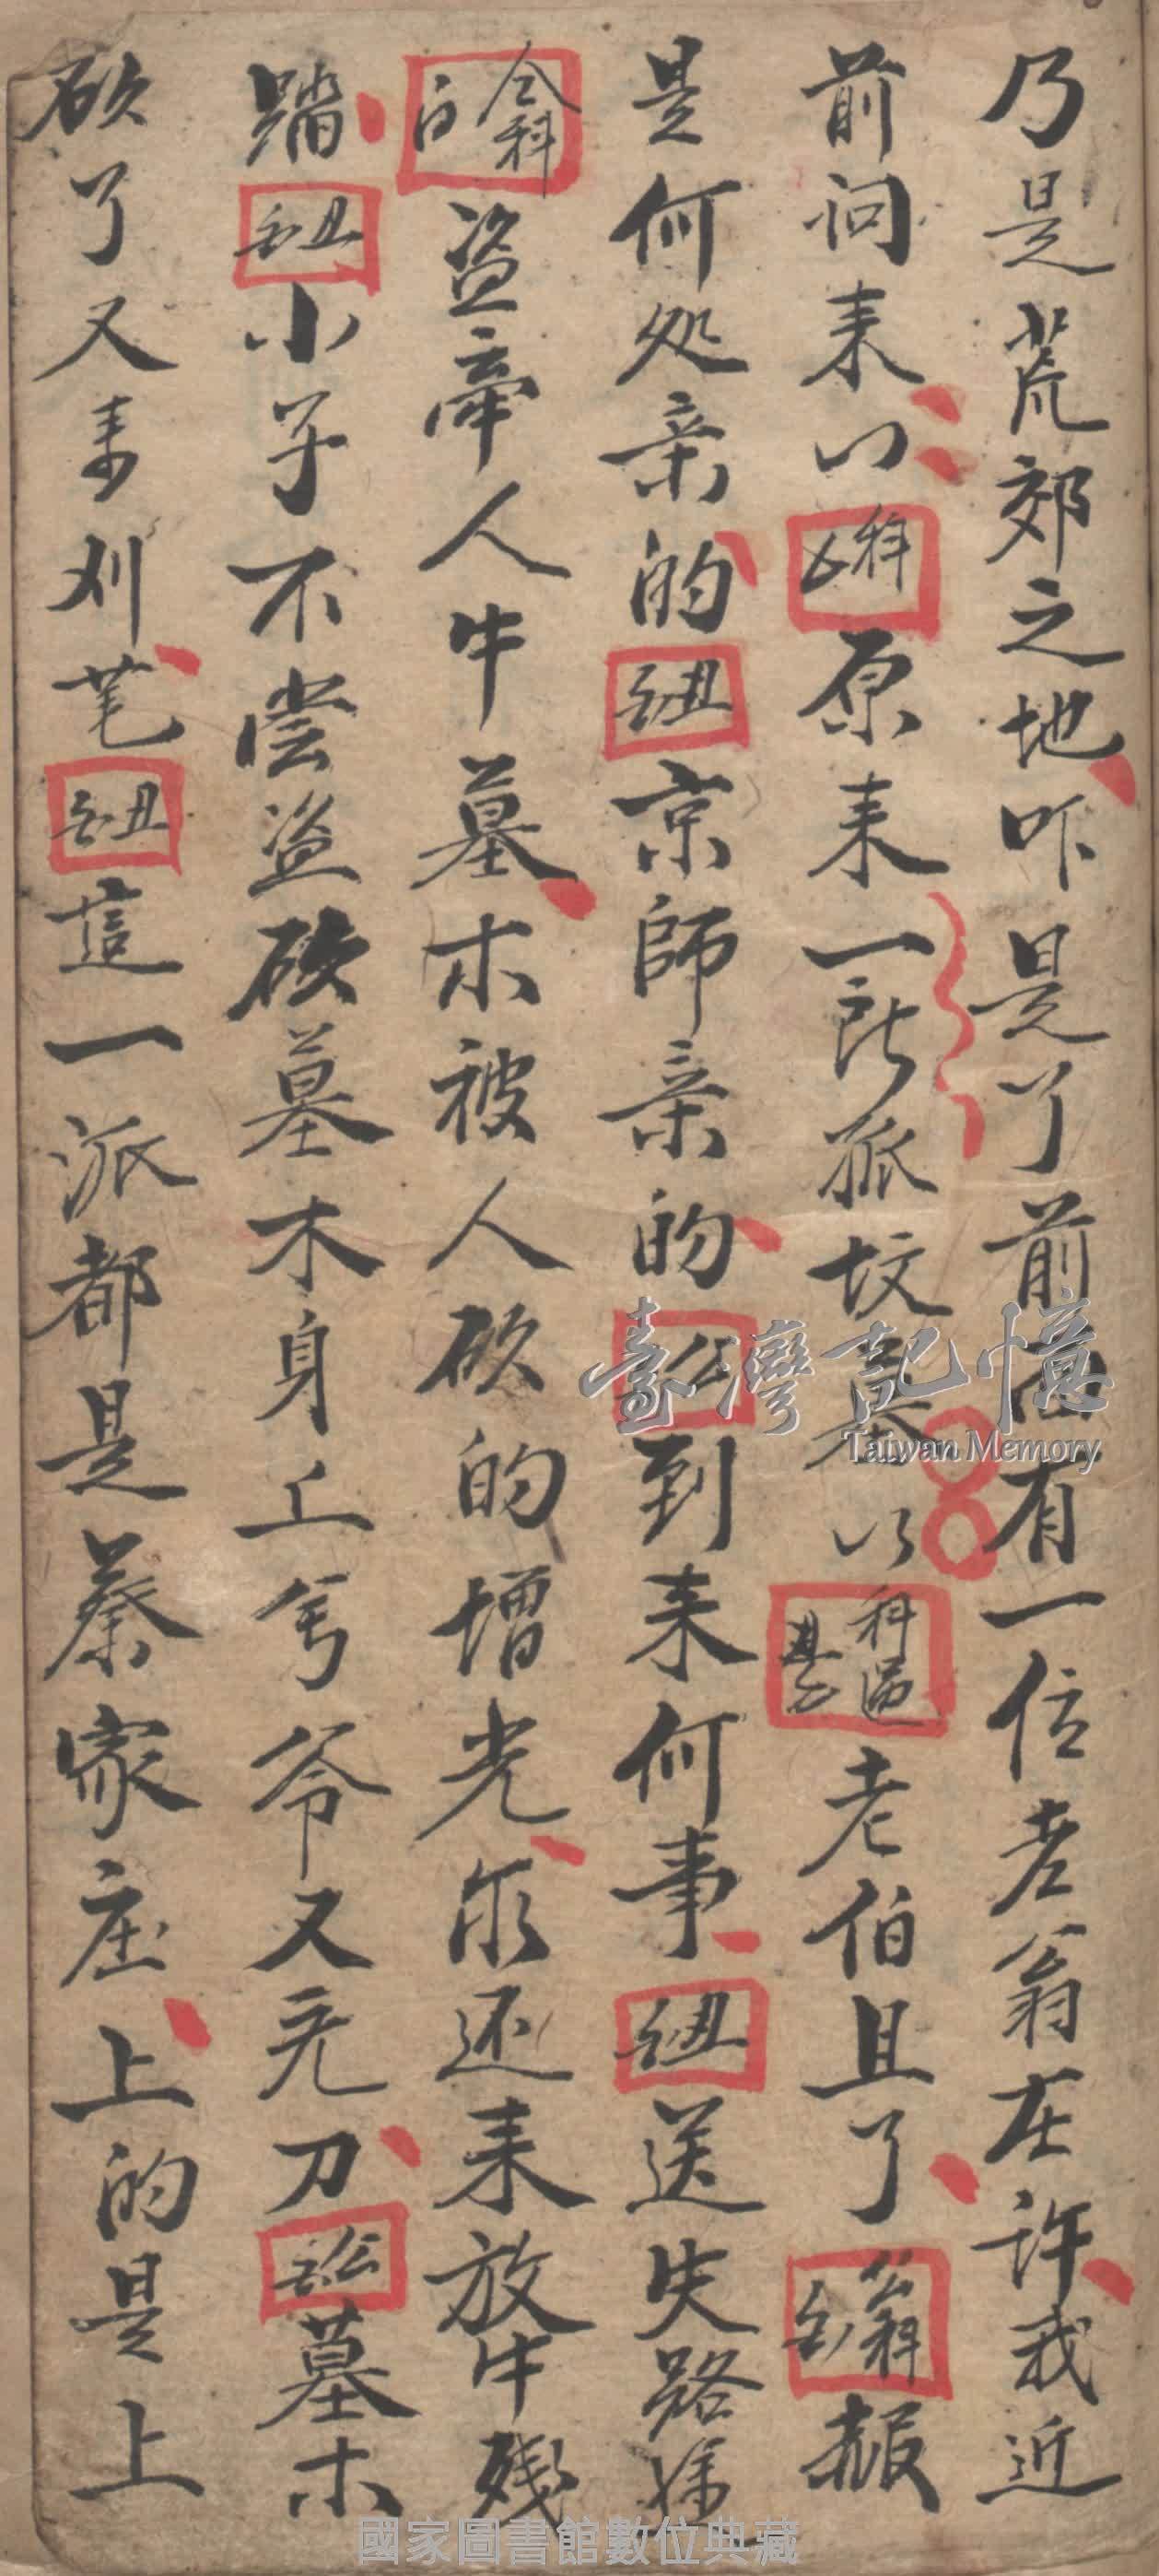 乃是荒郊之地吓是了前面有一位老翁在许我近
前问来以科原来一所孤坟墓以科老伯且了翁科报
是何处亲的丑京師亲的公到来何事丑送失路
仝科白盗牵人牛墓木被人砍的增光尔还来放牛残
踏丑小子不尝盗砍墓木身上兮爷又无刀公墓木
砍了又来刈笔丑這一派都是蔡家庄上的是上
臺灣記憶
Taiwan Memory
國家圖書館數位典藏